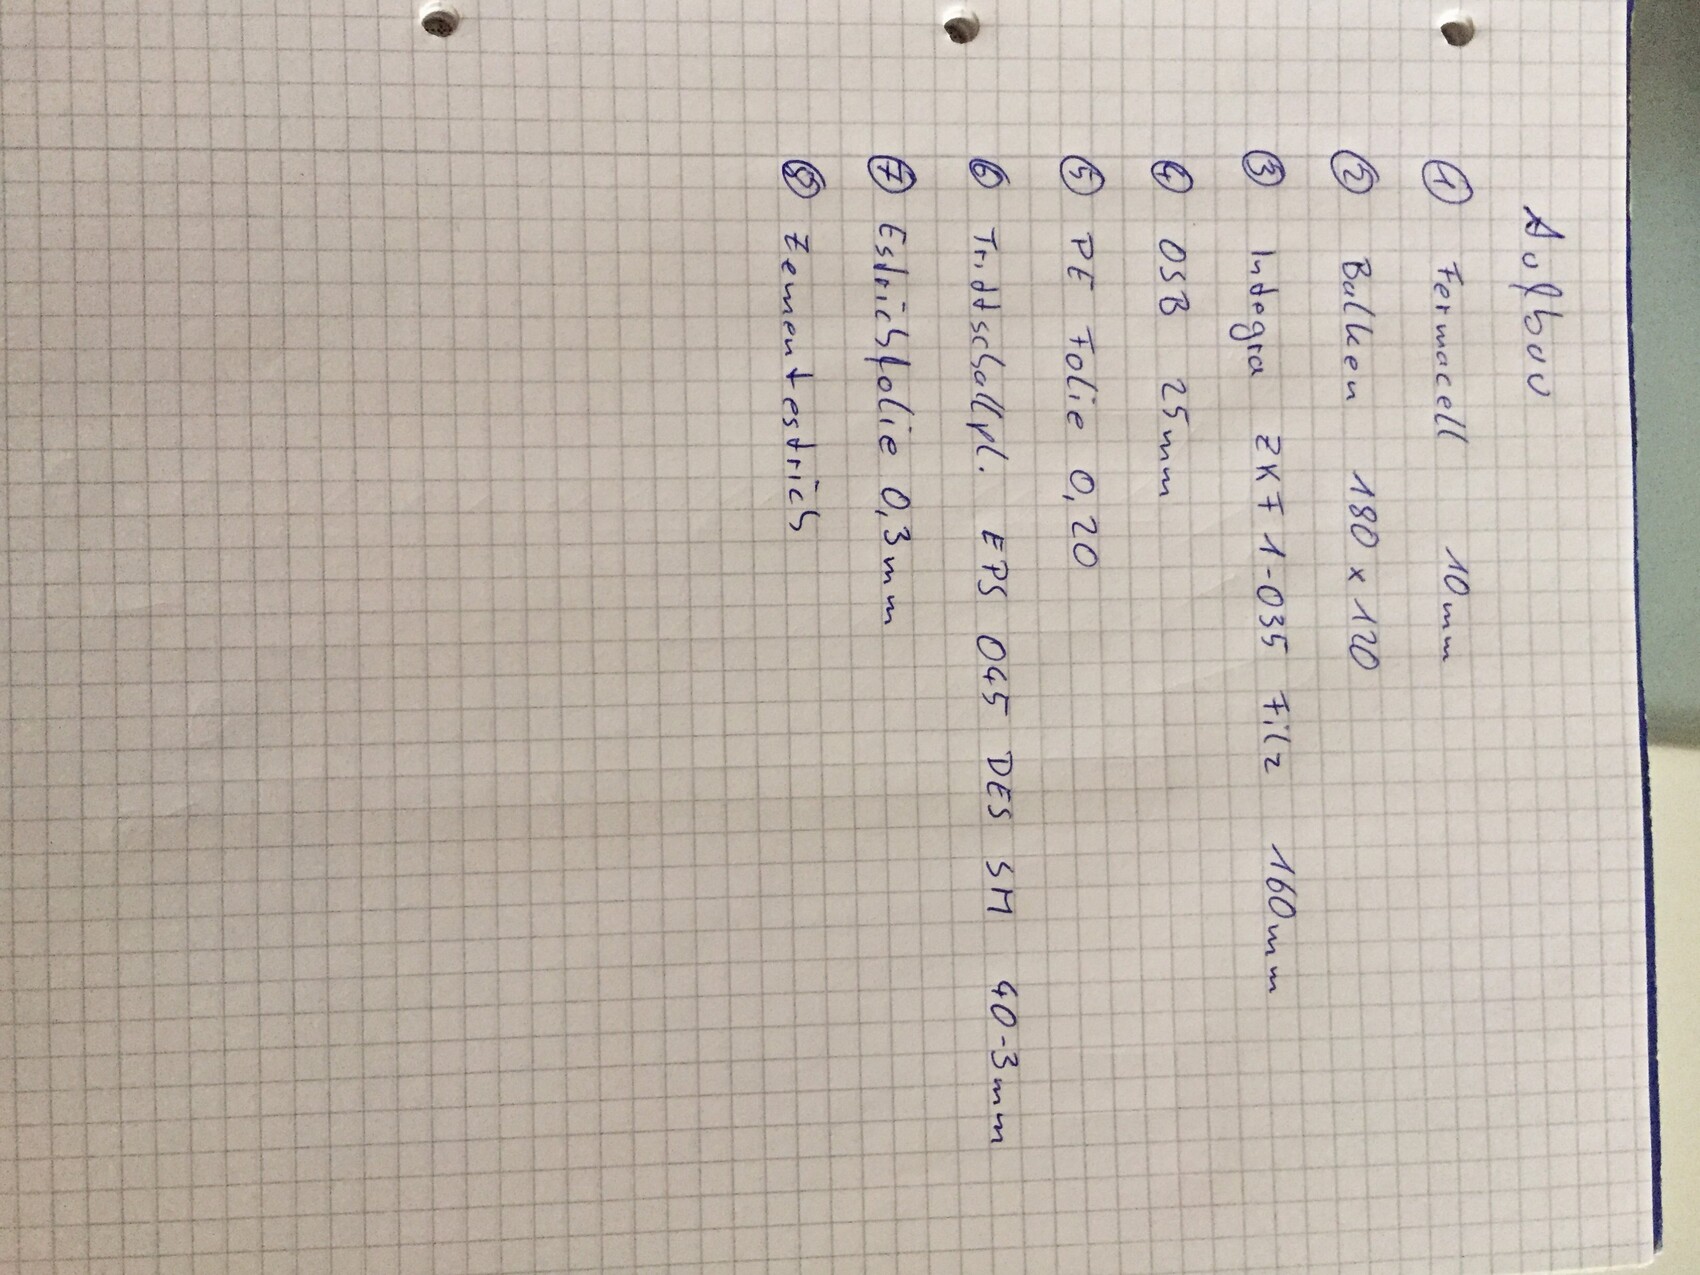 Aufbau
① Fermacell 10mm
② Balken 180 x 120
③ Integra ZKF 1-035 Filz 160mm
④ OSB 25mm
⑤ PE Folie 0,20
⑥ Trittschallpl. EPS 045 DES SM 40-3mm
⑦ Estrichfolie 0,3mm
⑧ Zementestrich